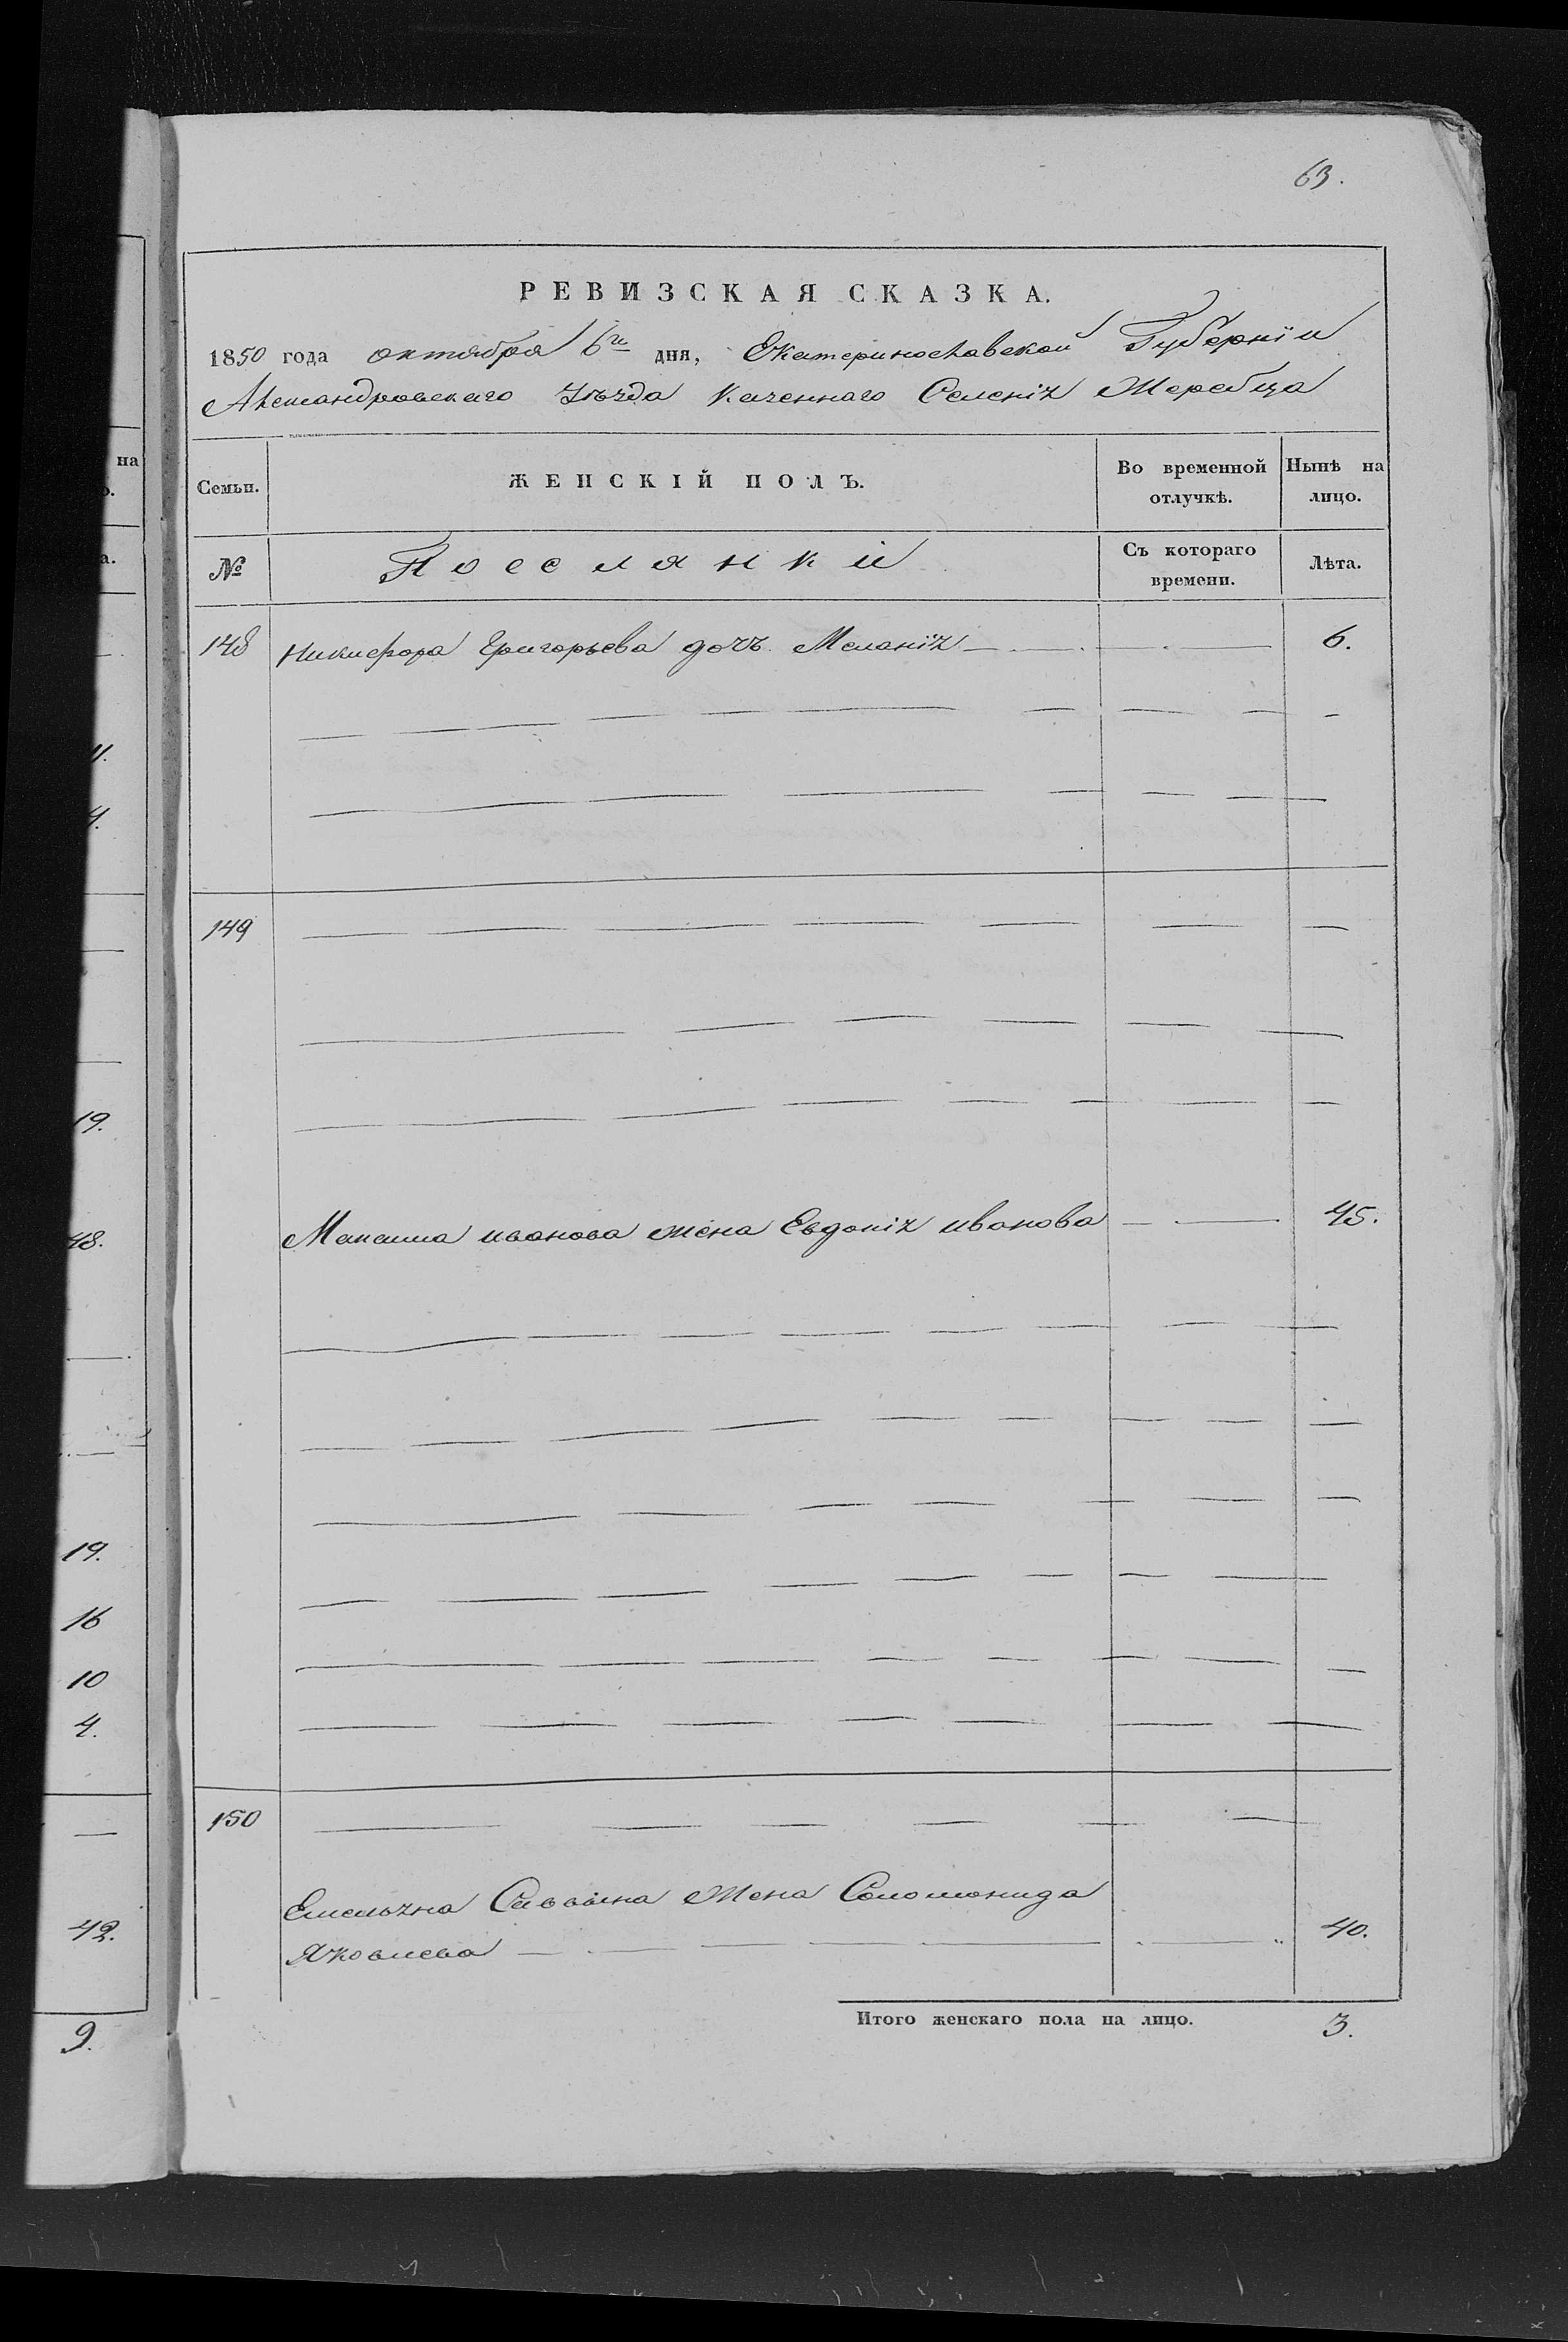 63.
РЕВИЗСКАЯ СКАЗКА.
1850 года октября 6го дня, Екатеринославской Губерніи
Александровскаго Уѣзда Казеннаго Селенія Жеребца
на
Семьи.
ЖЕНСКІЙ ПОЛЪ.
Во временной отлучкѣ.
Нынѣ на лицо.
№
Поселянки
Съ котораго времени.
Лѣта.
148 Никифора Григорьева дочь Меланія 6.
11.
4.
149
19.
Максима иванова жена Евдокія иванова 45.
48.
19.
16
10
4.
150
Емельяна Саввина Жена Соломонида
Яковлева 40.
42.
Итого женскаго пола на лицо. 3.
9.